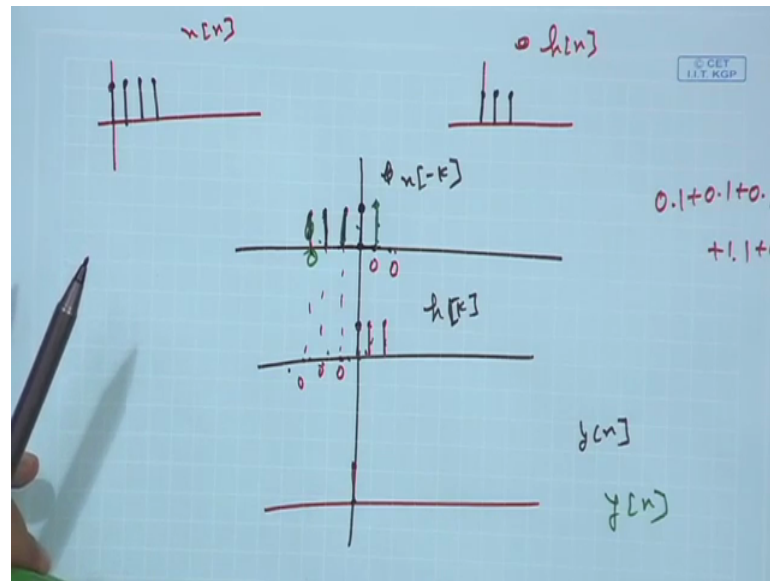 x[n]
h[n]
© CET
I.I.T. KGP
x[-k]
0.1+0.1+0.
+1.1+
0 0 0
h[k]
0 0 0
y[n]
y[n]